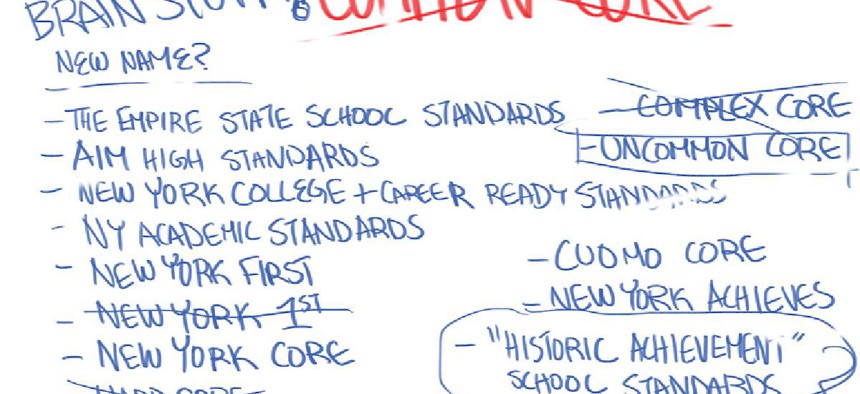 BRAIN
COMMON CORE
NEW NAME?
- THE EMPIRE STATE SCHOOL STANDARDS
- AIM HIGH STANDARDS
- NEW YORK COLLEGE + CAREER READY STANDARDS
- NY ACADEMIC STANDARDS
- NEW YORK FIRST
- NEW YORK 1ST
- NEW YORK CORE
- COMPLEX CORE
- UNCOMMON CORE
- CUOMO CORE
- NEW YORK ACHIEVES
- "HISTORIC ACHIEVEMENT"
SCHOOL STANDARDS